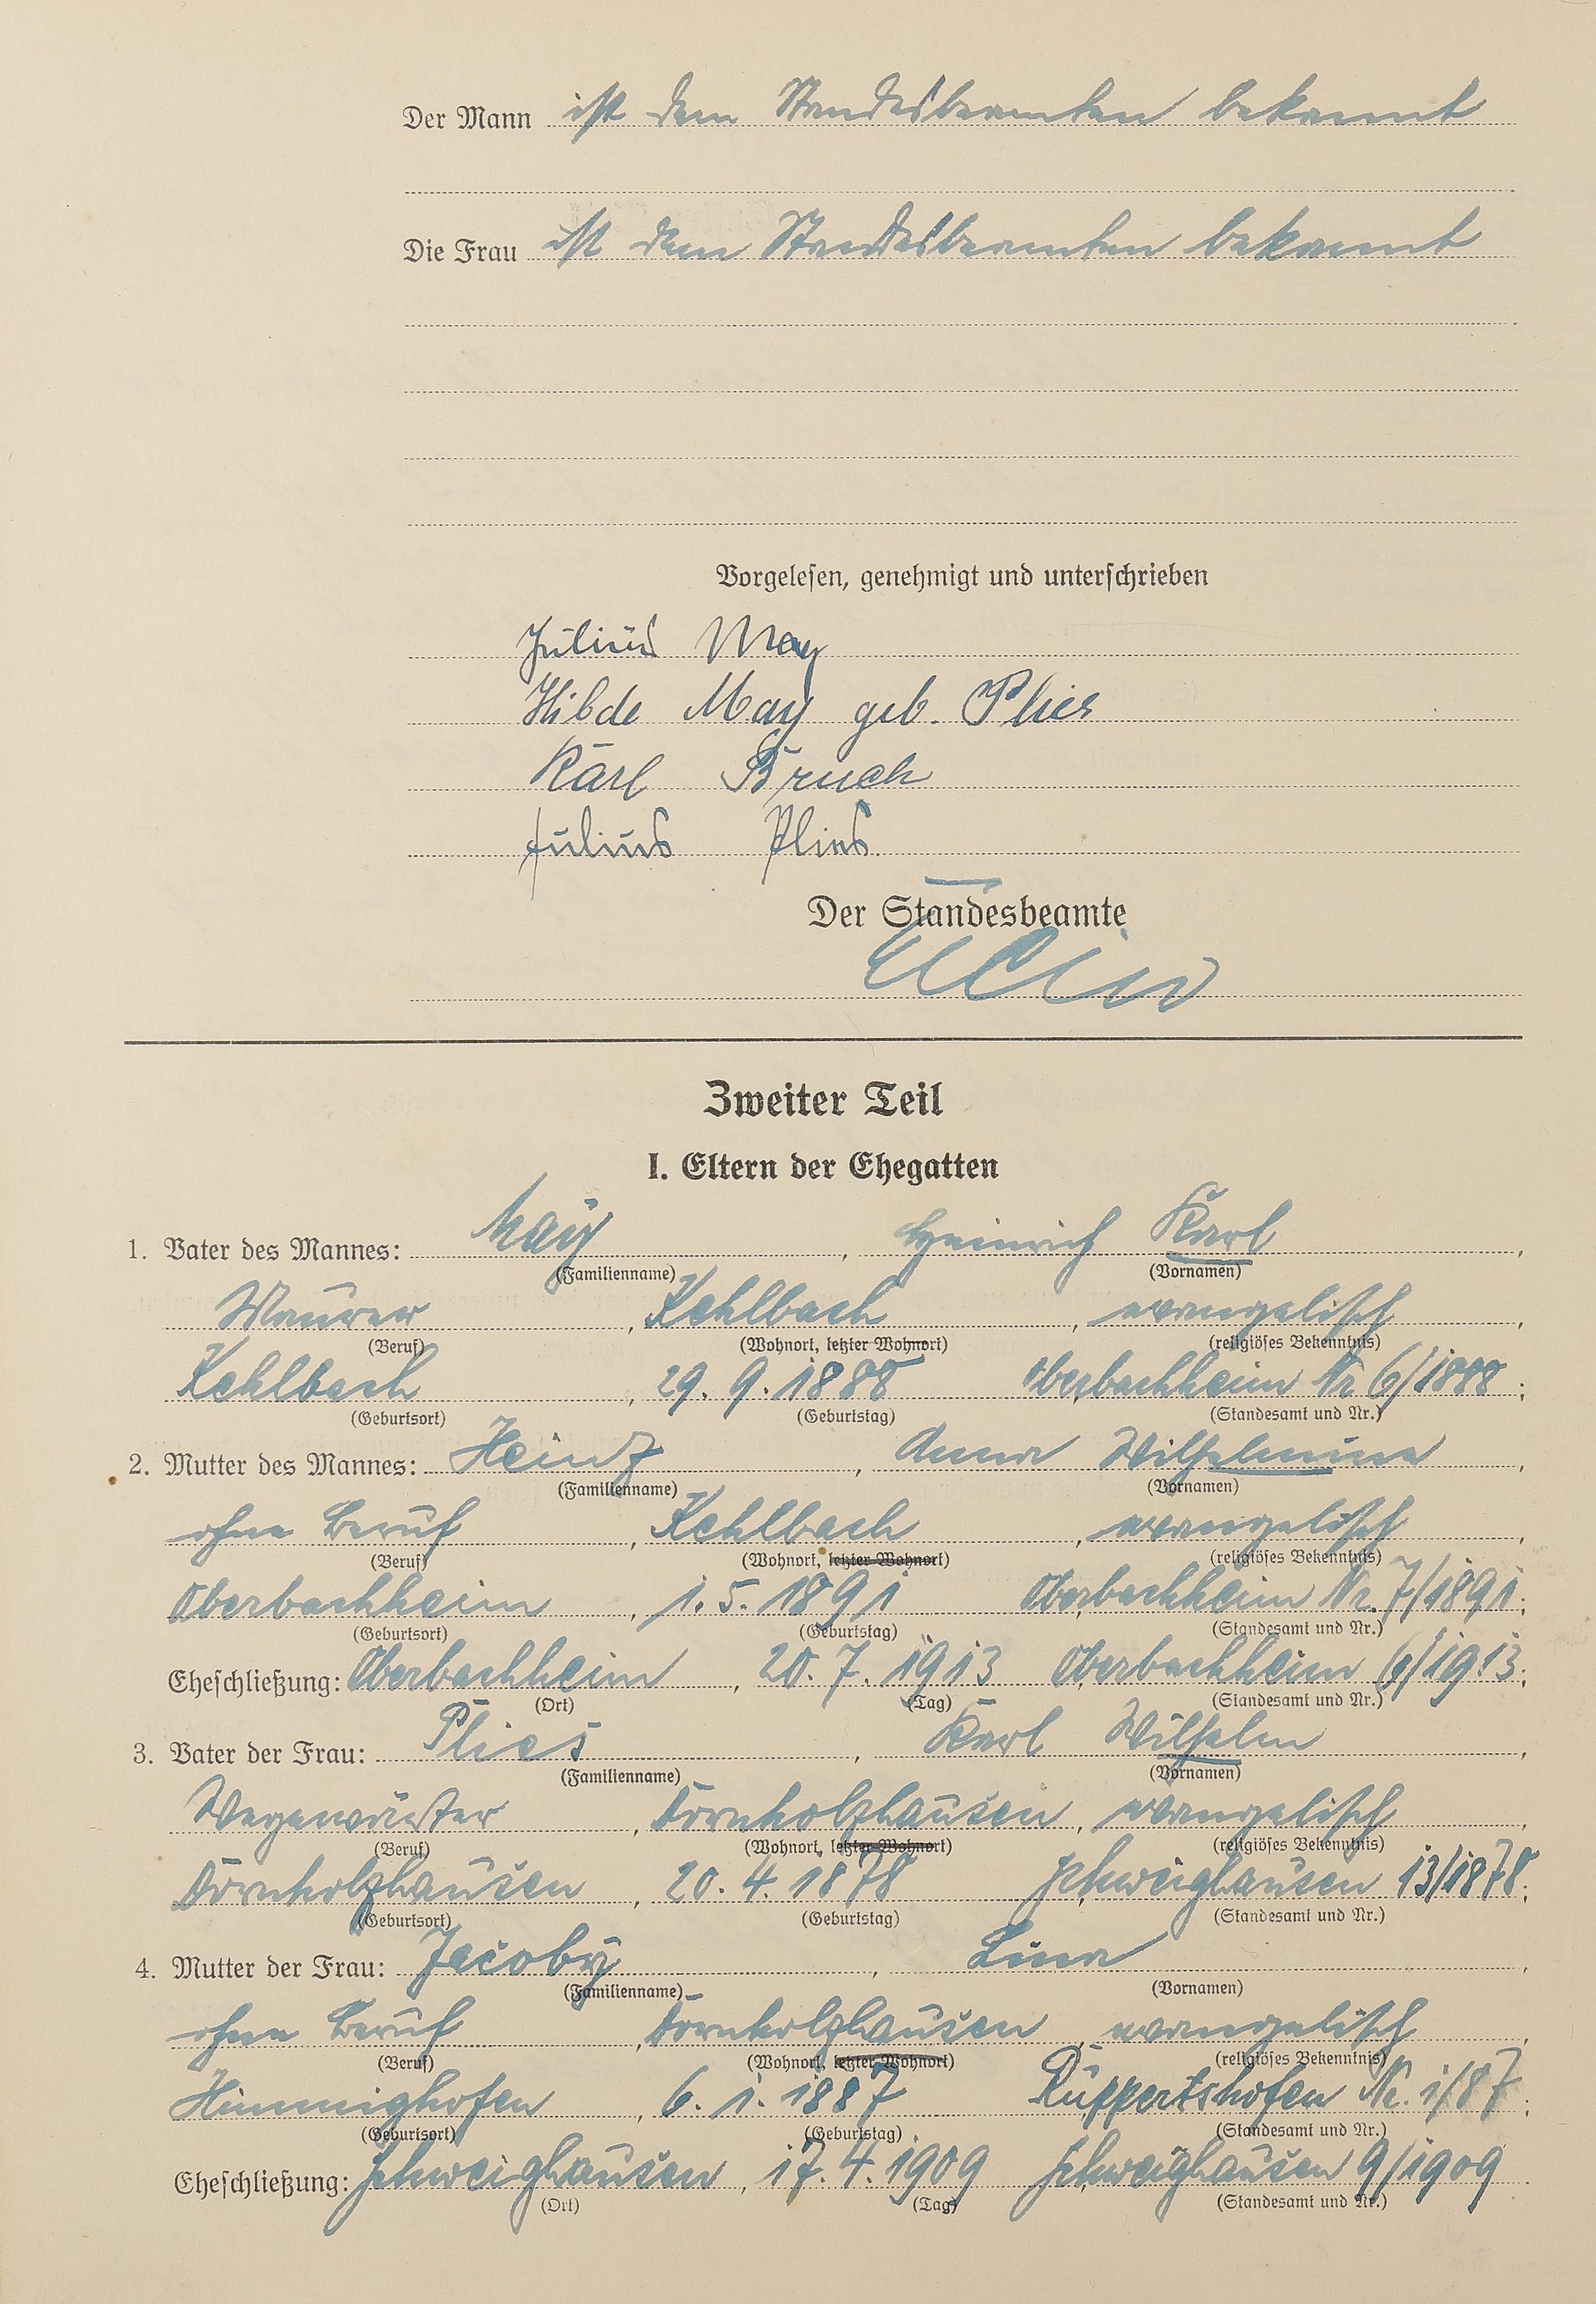 Der Mann ist dem Standesbeamten bekannt
Die Frau ist dem Standesbeamten bekannt
Vorgelesen, genehmigt und unterschrieben
Julius May
Hilde May geb. Plies
Karl Bruch
Julius Plies
Der Standesbeamte
Zweiter Teil
I. Eltern der Ehegatten
1. Vater des Mannes: May, Heinrich Karl,
(Familienname) (Vornamen)
Maurer, Kehlbach, evangelisch,
(Beruf) (Wohnort, letzter Wohnort) (religiöses Bekenntnis)
Kehlbach, 29. 9. 1888 Oberbachheim Nr 6/1888;
(Geburtsort) (Geburtstag) (Standesamt und Nr.)
2. Mutter des Mannes: Heinz, Anna Wilhelmine,
(Familienname) (Vornamen)
ohne Beruf, Kehlbach, evangelisch,
(Beruf) (Wohnort, letzter Wohnort) (religiöses Bekenntnis)
Oberbachheim, 1. 5. 1891 Oberbachheim Nr. 7/1891;
(Geburtsort) (Geburtstag) (Standesamt und Nr.)
Eheschließung: Oberbachheim, 20. 7. 1913 Oberbachheim 6/1913;
(Ort) (Tag) (Standesamt und Nr.)
3. Vater der Frau: Plies, Karl Wilhelm,
(Familienname) (Vornamen)
Wegewärter, Dornholzhausen, evangelisch,
(Beruf) (Wohnort, letzter Wohnort) (religiöses Bekenntnis)
Dornholzhausen, 20. 4. 1878 Schweighausen 13/1878;
(Geburtsort) (Geburtstag) (Standesamt und Nr.)
4. Mutter der Frau: Jacoby, Lina,
(Familienname) (Vornamen)
ohne Beruf, Dornholzhausen, evangelisch,
(Beruf) (Wohnort, letzter Wohnort) (religiöses Bekenntnis)
Himmighofen, 6. 1. 1887 Ruppertshofen Nr. 1/87;
(Geburtsort) (Geburtstag) (Standesamt und Nr.)
Eheschließung: Schweighausen, 17. 4. 1909 Schweighausen 9/1909.
(Ort) (Tag) (Standesamt und Nr.)